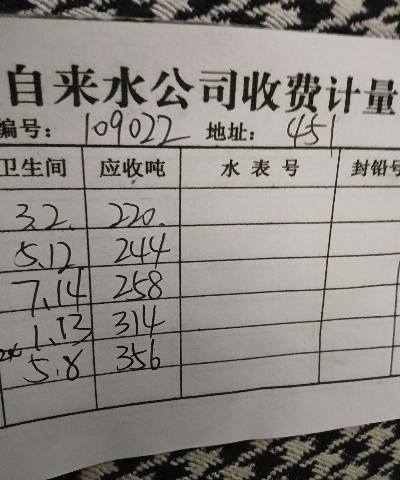 自来水公司收费计量
编号: 109022 地址: 451
卫生间 应收吨 水表号 封铅号
3.2. 220.
5.12 244
7.14 258
1.13 314
5.8 356